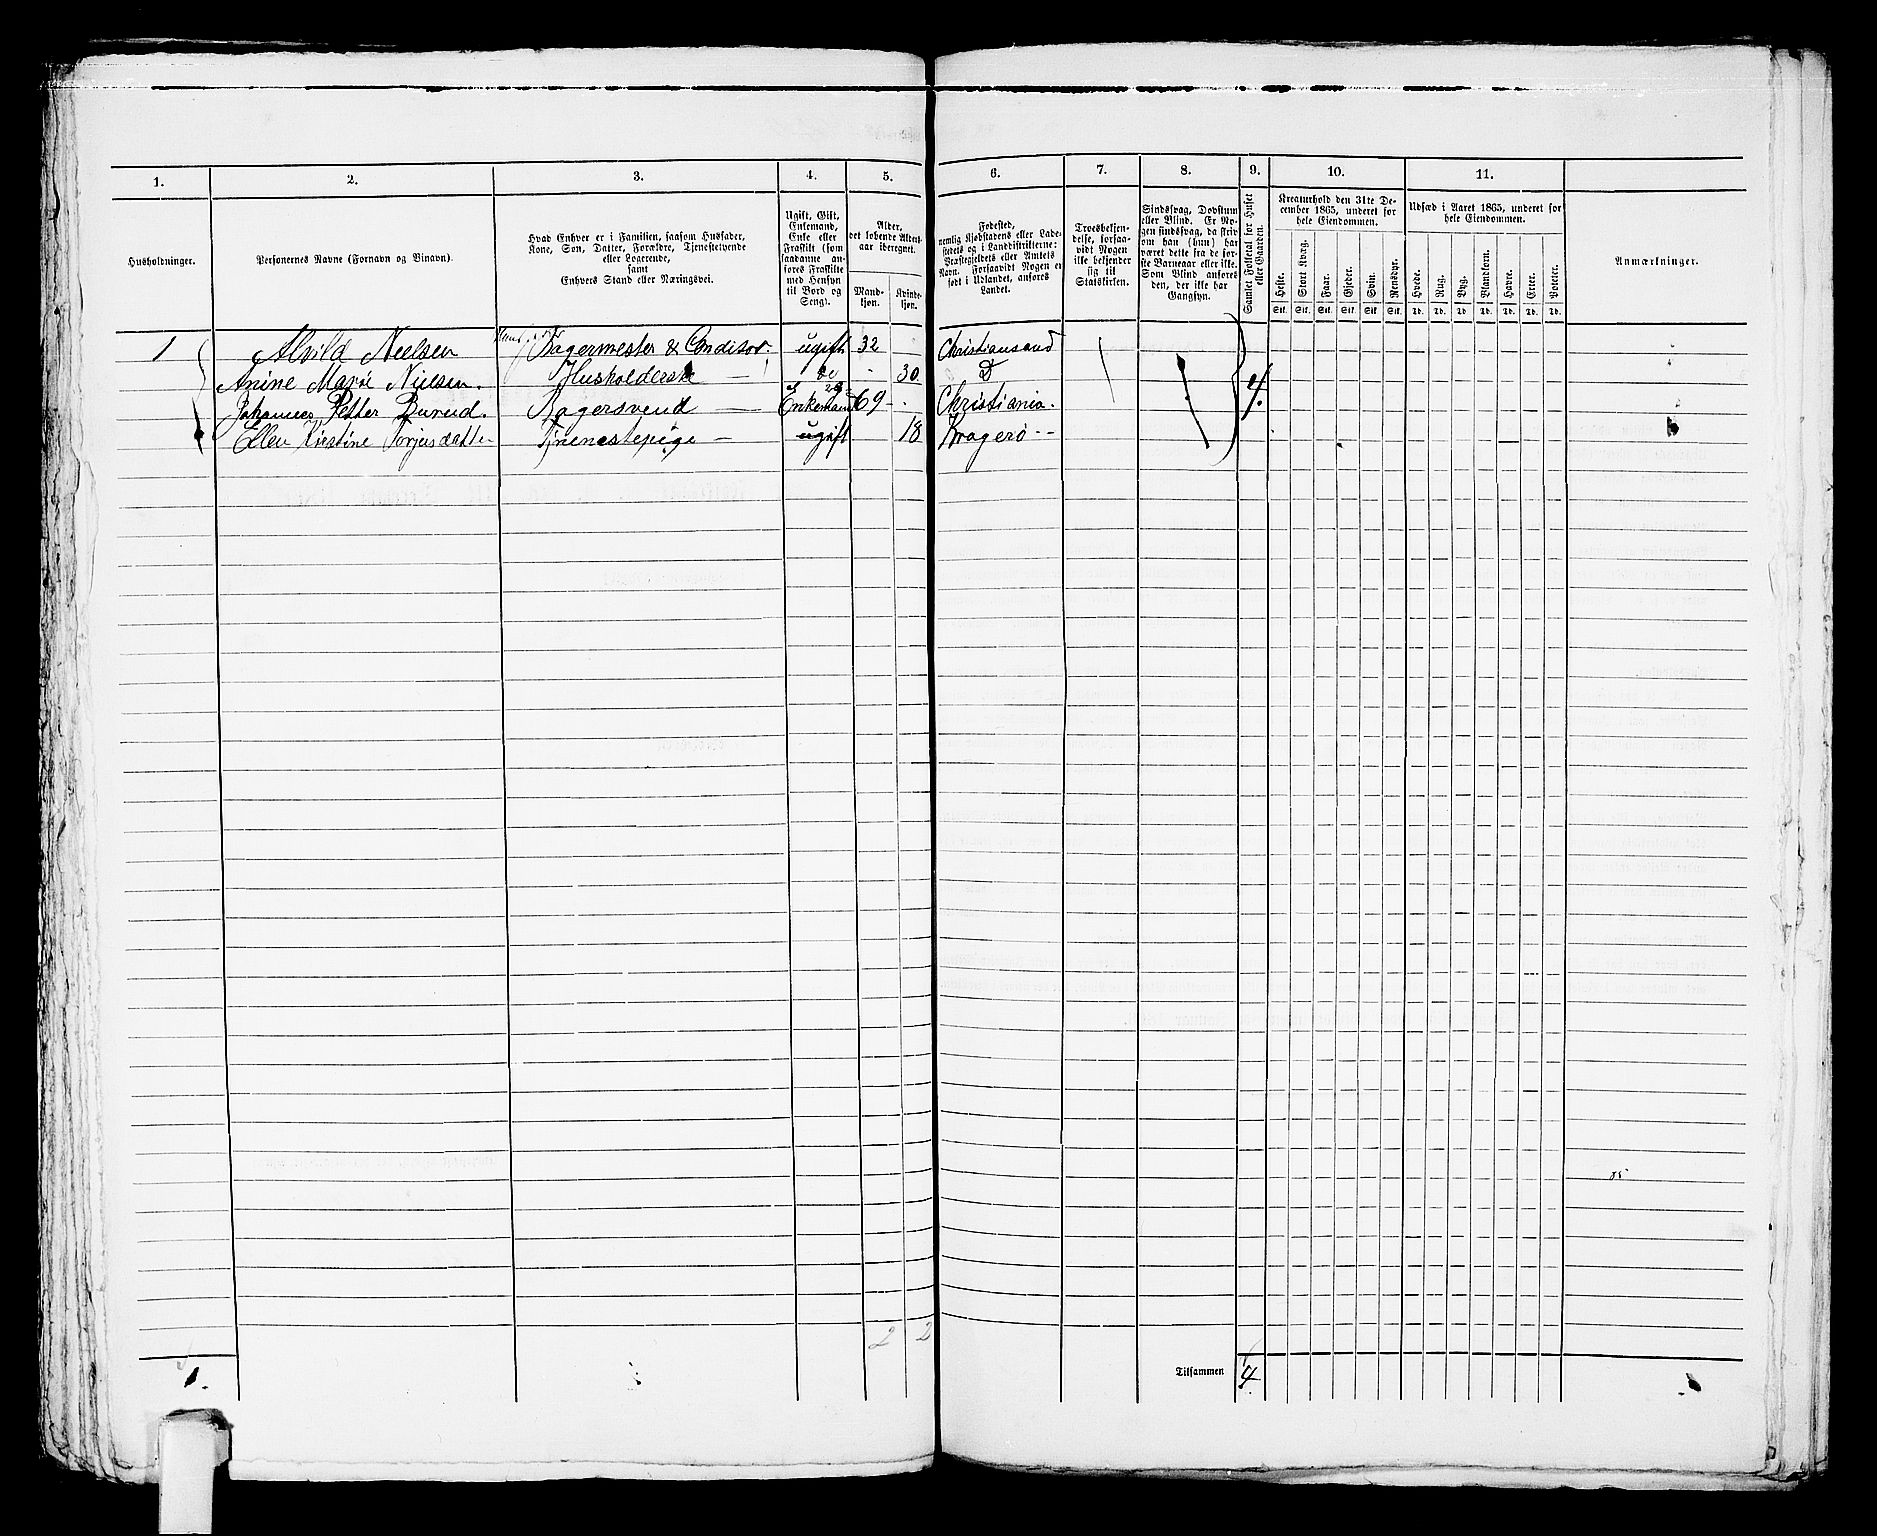 1. 2. 3. 4. 5. 6. 7. 8. 9. 10. 11.
Husholdninger.
Personernes Navne (Fornavn og Binavn).
Hvad Enhver er i Familien, saasom Husfader,
Kone, Søn, Datter, Forældre, Tjenestetyende
eller Logerende,
samt
Enhvers Stand eller Næringsvei.
Ugift, Gift,
Enkemand,
Enke eller
Fraskilt (som
saadanne an-
føres Fraskilte
med Hensyn
til Bord og
Seng).
Alder,
det løbende Alders-
aar iberegnet.
Mand-
kjøn.
Kvinde-
kjøn.
Fødested,
nemlig Kjøbstadens eller Lade-
stedets og i Landdistrikterne:
Præstegjeldets eller Amtets
Navn. Forsaavidt Nogen er
født i Udlandet, anføres
Landet.
Troesbekjen-
delse, forsaa-
vidt Nogen
ikke bekjender
sig til
Statskirken.
Sindssvag, Døvstum
eller Blind. Er No-
gen sindssvag, da skriv
om han (hun) har
været dette fra de før-
ste Barneaar eller ikke.
Som Blind anføres
den, der ikke har
Gangsyn.
Samlet Folketal for Huset
eller Gaarden.
Kreaturhold den 31te De-
cember 1865, underet for
hele Eiendommen.
Heste. Stort Kvæg. Faar. Gjeder. Svin. Rensdyr.
Stk. Stk. Stk. Stk. Stk. Stk.
Udsæd i Aaret 1865, underet for
hele Eiendommen.
Hvede. Rug. Byg. Blandkorn. Havre. Erter. Poteter.
Td. Td. Td. Td. Td. Td. Td.
Anmærkninger.
1 Alvild Neelsen Bagermester & Conditor. ugift 32 Christiansand
Anine Marie Nielsen. Husholderske do 30 D 4.
Johannes Petter Burud. Bagersvend Enkemand 69 Christiania.
Ellen Kirstine Torjusdatter Tjenestepige ugift 18 Kragerø
2 2
1. Tilsammen 4